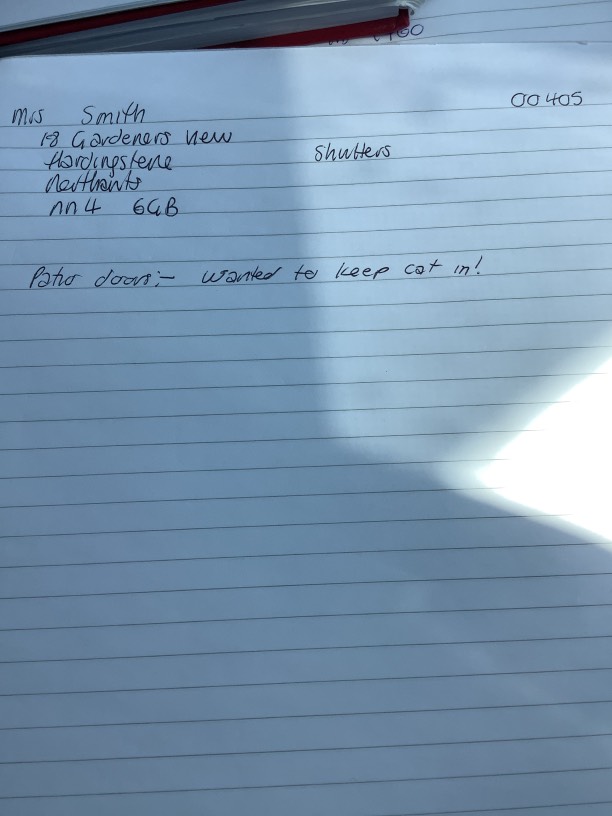 00405
Mrs Smith
18 Gardeners View
Hardingstone
Northants
NN4 6GB
Shutters
Patio doors:- wanted to keep cat in!